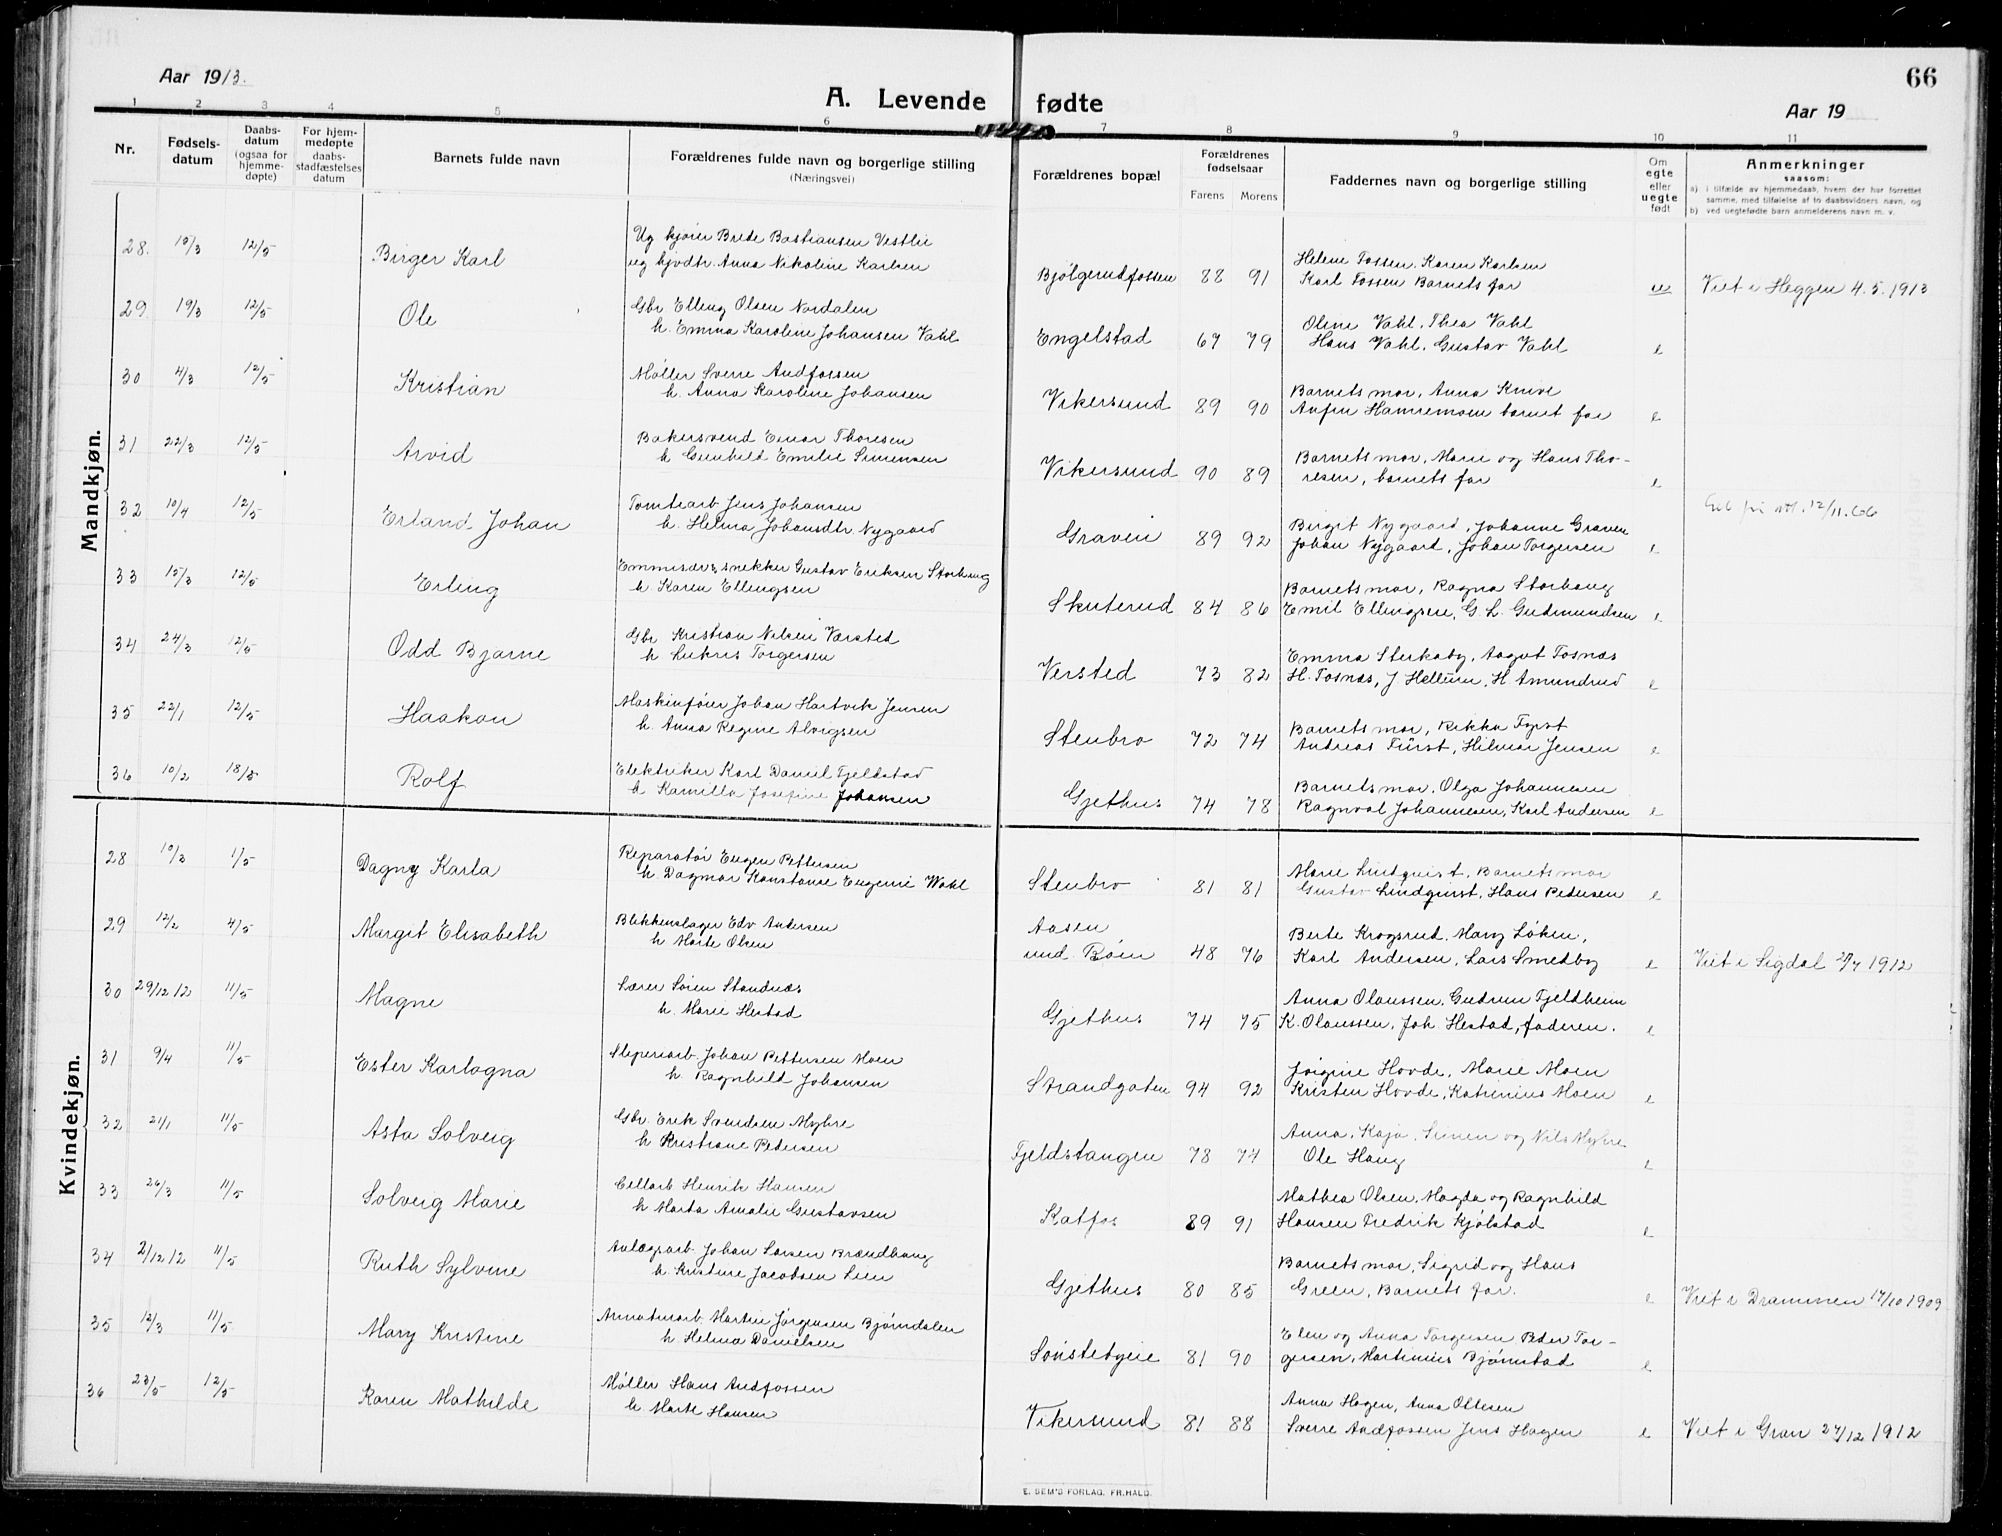 66
Aar 1913.
A. Levende fødte
Aar 19
1 2 3 4 5 6 7 8 9 10 11
Nr.
Fødsels-
datum
Daabs-
datum
(ogsaa for
hjemme-
døpte)
For hjem-
medøpte
daabs-
stadfæstelses
datum
Barnets fulde navn
Forældrenes fulde navn og borgerlige stilling
(Næringsvei)
Forældrenes bopæl
Forældrenes
fødselsaar
Farens Morens
Faddernes navn og borgerlige stilling
Om
egte
eller
uegte
født
Anmerkninger
saasom:
a) i tilfælde av hjemmedaab, hvem der har forrettet
samme, med tilføielse af to daabsvidners navn, og
b) ved uegtefødte barn anmelderens navn m. v.
Mandkjøn.
28. 15/3 12/5 Birger Karl
Ug kjører Brede Bastiansen Vestlie
ug hjvdtr. Anna Nikoline Karlsen
Bjølgerudfossen 88 91
Helene Fossen, Karen Karlsen
Karl Fossen Barnets far
ue Viet i Heggen 4.5.1913
29 19/3 12/5 Ole
Gbr Elling Olsen Nordalen
h. Emma Karoline Johansen Vahl
Engelstad 67 79
Oline Vahl, Thea Vahl
Hans Vahl, Gustav Vahl
e
30 4/3 12/5 Kristian
Møller Sverre Andfossen
h. Anna Karoline Johansen
Vikersund 89 90
Barnets mor, Anna Knive
Anfin Hamremoen barnet far
e
31 22/3 12/5 Arvid
Bakersvend Einar Thoresen
h Gunhild Emilie Simensen
Vikersund 90 89
Barnets mor, Marie og Hans Tho-
resen, barnets far
e
32 10/4 12/5 Erland Johan
Tomtearb Jens Johansen
h. Helma Johansdtr Nygaard
Graven 89 92
Birgit Nygaard, Johanne Graven
Johan Nygaard, Johan Torgersen
e 12/11.66
33 15/3 12/5 Erling
snekker Gustav Eriksen Storhaug
h. Karen Ellingsen
Skuterud 84 86
Barnets mor, Ragna Storhaug
Emil Ellingsen, G. L. Gudmundsen
e
34 24/3 12/5 Odd Bjarne
Gbr Kristian Nilsen Værsted
h Lukris Torgersen
Versted 73 82
Emma Sterkeby, Aagot Fosnæs
H. Fosnæs, J Hellum, H Amundrud
e
35 22/1 12/5 Haakon
Maskinfører Johan Hartvik Jensen
h. Anna Regine Alvigsen
Stenbro 72 74
Barnets mor, Rikka Fyrst
Andreas Fürst, Hilmar Jensen
e
36 10/2 18/5 Rolf
Elektriker Karl Daniel Fjeldstad
h Kamilla Josefine Johansen
Gjethus 74 78
Barnets mor, Olga Johannesen
Ragnval Johannesen, Karl Andersen
e
Kvindekjøn.
28 10/3 1/5 Dagny Karla
Reparatør Eugen Pettersen
h. Dagmar Konstanse Eugenie Wahl
Stenbro 81 81
Marie Lindqvist, Barnets mor
Gustav Lindqvist, Hans Pedersen
e
29 12/2 4/5 Margit Elisabeth
Blikkenslager Edv Andersen
h Marte Olsen
Aasen
und. Bøen 48 76
Berte Krogsrud, Mary Løken,
Karl Andersen, Lars Smedby
e Viet i Sigdal 29/7 1912
30 29/12 12 11/5 Magne
Lærer Søren Standnæs
h. Marie Hestad
Gjethus 74 75
Anna Olaussen, Gudrun Fjeldheim
K. Olaussen, Joh Hestad, faderen.
e
31 9/4 11/5 Ester Karlagna
Sliperiarb. Johan Pettersen Moen
h. Ragnhild Johansen
Strandgaten 94 92
Jørgine Hovde, Marie Moen
Kristen Hovde, Katrinius Moen
e
32 21/1 11/5 Asta Solveig
Gbr. Erik Svendsen Myhre
h Kristiane Pedersen
Fjeldstangen 78 74
Anna, Kaja, Simen og Nils Myhre
Ole Haug
e
33 26/3 11/5 Solveig Marie
Cellarb Henrik Hansen
h Marta Amalie Gustavsen
Katfos 89 91
Mathea Olsen, Magda og Ragnhild
Hansen Fredrik Kjølstad
e
34 2/12 12 11/5 Ruth Sylvine
Anlægsarb. Johan Larsen Brændhaug
h. Kristine Jacobsen Lien
Gjethus 80 85
Barnets mor, Sigrid og Hans
Green, Barnets far.
e Viet i Drammen 17/10 1909
35 12/3 11/5 Mary Kristine
Martin Jørgensen Bjørndalen
h Helma Danielsen
Sønstebyeie 81 90
Elen og Anna Torgersen Peder Tor-
gersen, Martinius Bjørnstad
e
36 23/5 12/5 Karen Mathilde
Møller Hans Andfossen
h Marte Hansen
Vikersund 81 88
Anna Hagen, Anna Ottesen
Sverre Andfossen Jens Hagen
e Viet i Gran 27/12 1912
E. SEM'S FORLAG, FR.HALD.